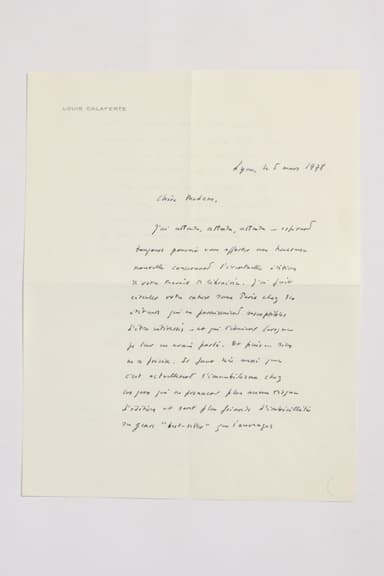 LOUIS CALAFERTE
Lyon, le 5 mars 1978
Chère Madame,
J'ai attendu, attendu, attendu – espérant
toujours pouvoir vous apporter une heureuse
nouvelle concernant l'éventuelle édition
de votre de librairie. J'ai fait
circuler votre dans Paris chez des
éditeurs qui me paraissaient susceptibles
d'être intéressés – et qui l'étaient lorsque
je leur en avais parlé. Et puis – rien
ne se précise. Il faut dire aussi que
c'est actuellement l'immobilisme chez
les gens qui ne prennent plus aucun risque
d'édition et sont plus friands d'imbécillités
du genre "best-seller" que d'ouvrages